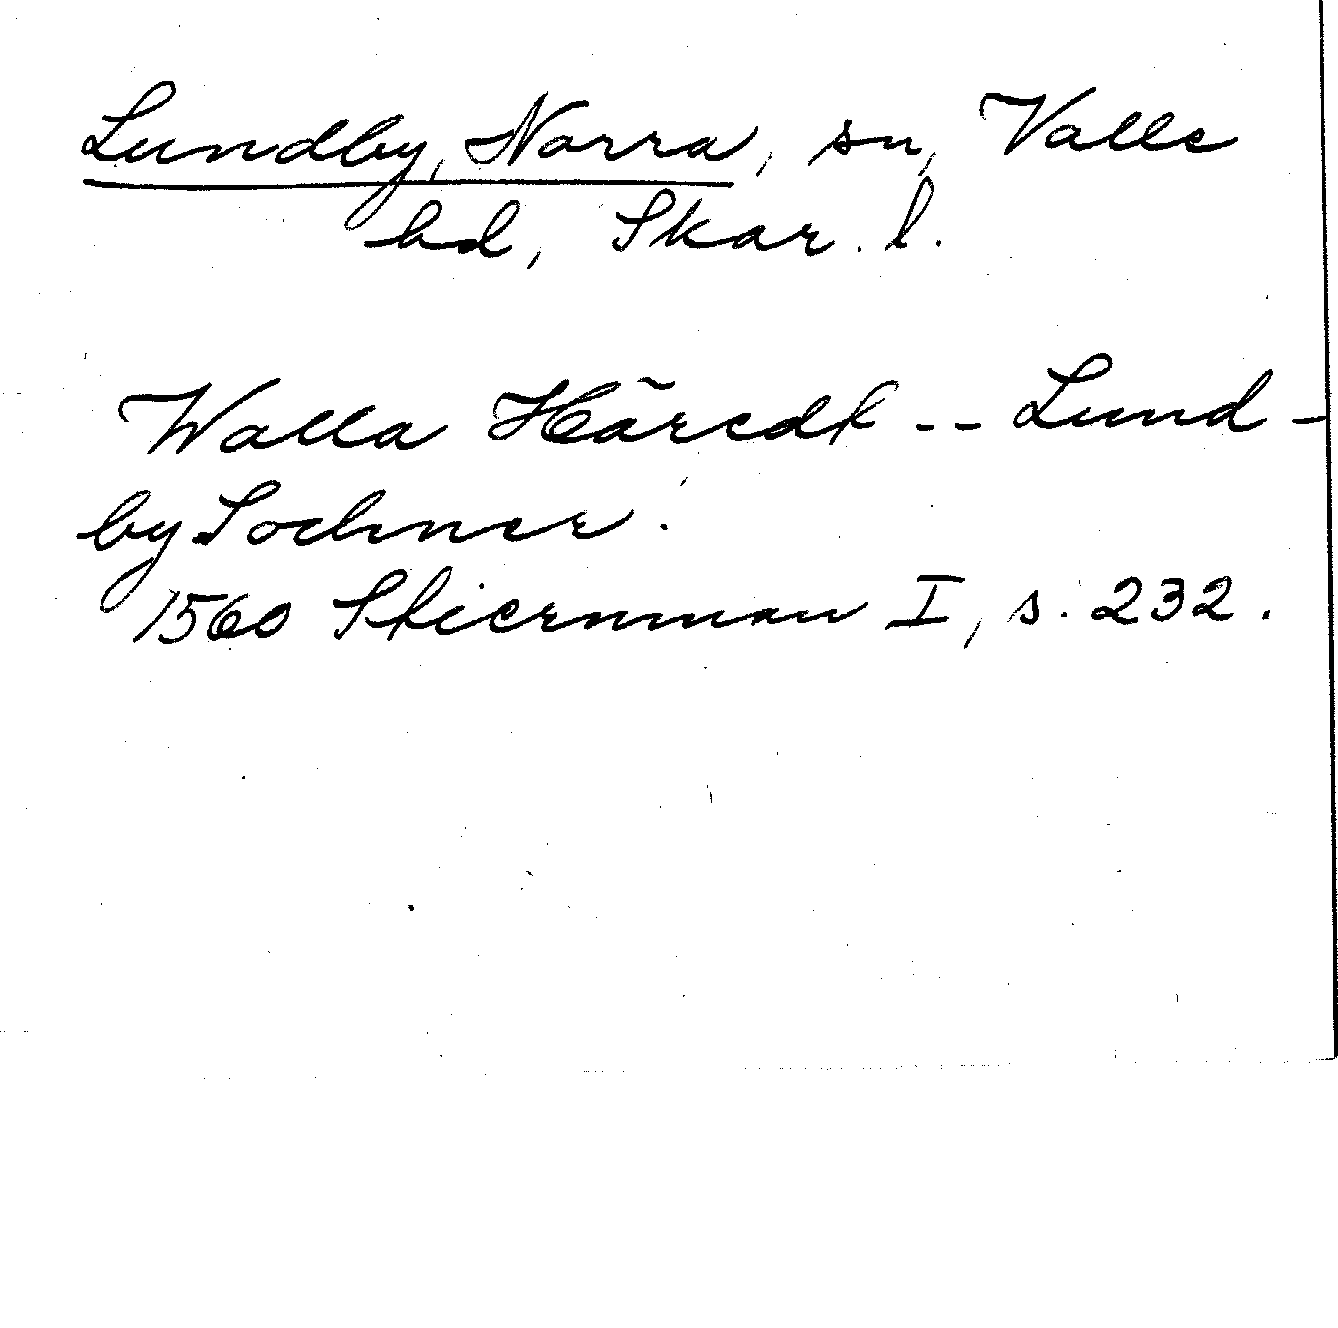 Lundby, Norra, sn, Valle
hd, Skar. l.
Walla Häredt -- Lund-
by Sochner.
1560 Stiernman I, s. 232.